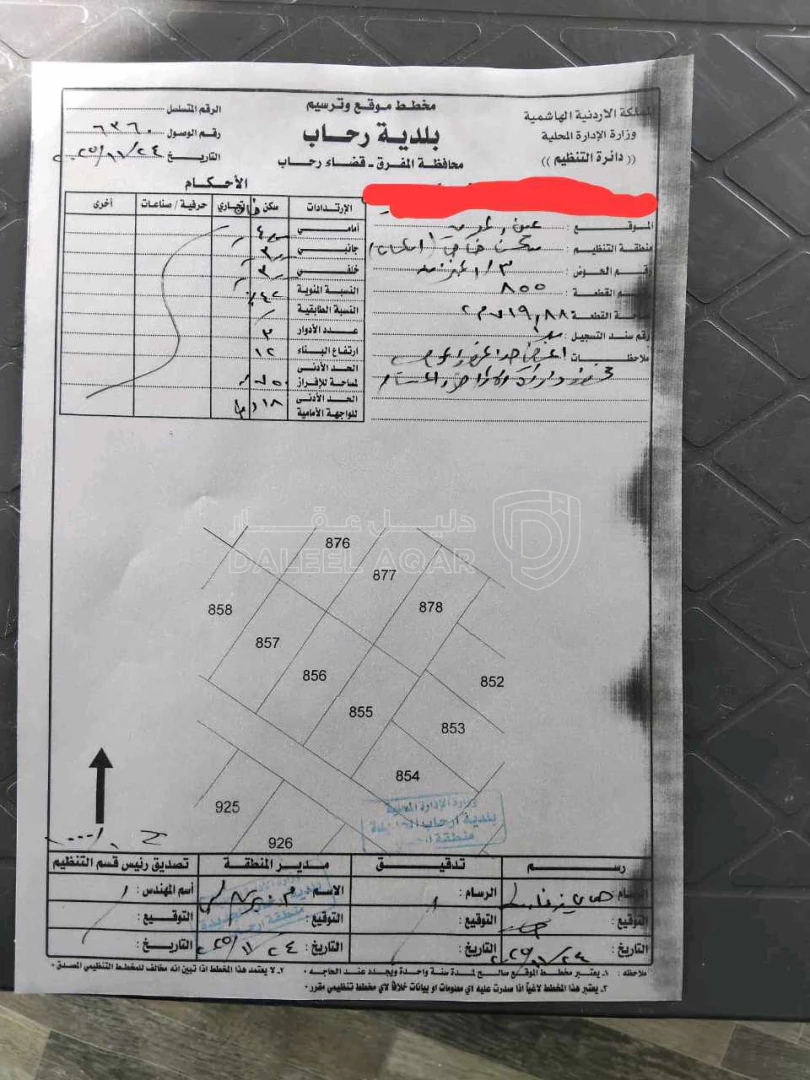 المملكة الاردنية الهاشمية
وزارة الإدارة المحلية
(( دائرة التنظيم ))
مخطط موقع وترسيم
بلدية رحاب
محافظة المفرق - قضاء رحاب
الرقم المتسلسل
رقم الوصول ٦٣٦٠
التاريخ ٢٠٢٥/١١/٢٤
الموقع :
منطقة التنظيم : سكن خاص
رقم الحوض : ٣/
رقم القطعة : ٨٥٥
مساحة القطعة : ٧١٩,٨٨ م٢
رقم سند التسجيل :
ملاحظات :
الأحكام
الإرتدادات سكن تجاري حرفية / صناعات أخرى
أمامي ٤
جانبي ٣
خلفي ٣
النسبة المئوية ٤٢٪
النسبة الطابقية
عدد الأدوار ٣
ارتفاع البناء ١٢
الحد الأدنى لمساحة للإفراز ٧٥٠
الحد الأدنى للواجهة الأمامية ١٨
دليل عقار
DALEEL AQAR
876
877
858
878
857
856
852
855
853
854
925
926
وزارة الإدارة المحلية
رسم
تدقيق
مدير المنطقة
تصديق رئيس قسم التنظيم
الرسام :
الرسام :
الاسم :
أسم المهندس :
التوقيع :
التوقيع :
التوقيع :
التوقيع :
التاريخ : ٢٠٢٥/١١/٢٤
التاريخ :
التاريخ : ٢٠٢٥/١١/٢٤
التاريخ :
ملاحظه : ١. يعتبر مخطط الموقع صالح لمدة سنة واحدة ويجدد عند الحاجه •
٢. لا يعتمد هذا المخطط اذا تبين انه مخالف للمخطط التنظيمي المصدق •
٢. يعتبر هذا المخطط لاغياً اذا صدرت عليه أي معلومات او بيانات خلافاً لأي مخطط تنظيمي مقرر •